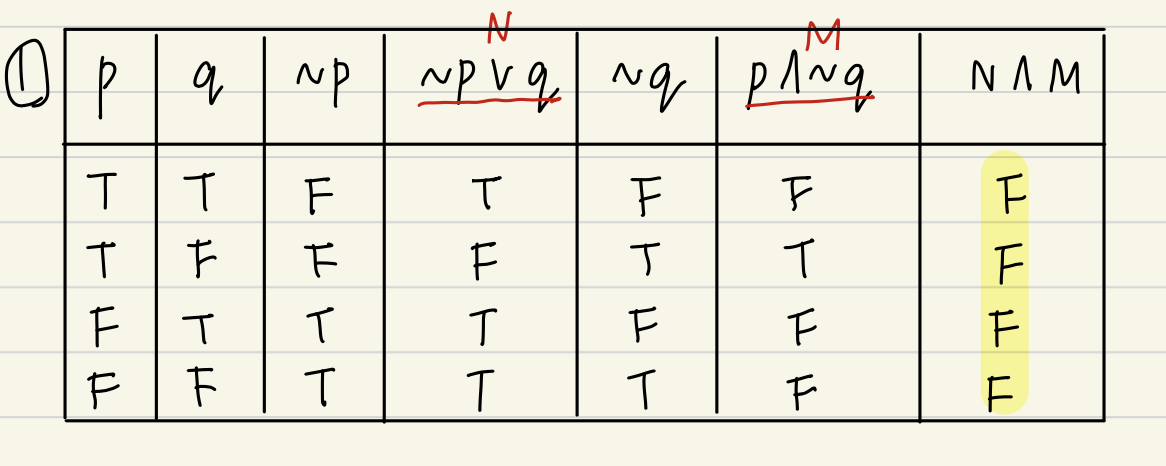 N M
① p q ~p ~p ∨ q ~q p ∧ ~q N ∧ M
T T F T F F F
T F F F T T F
F T T T F F F
F F T T T F F